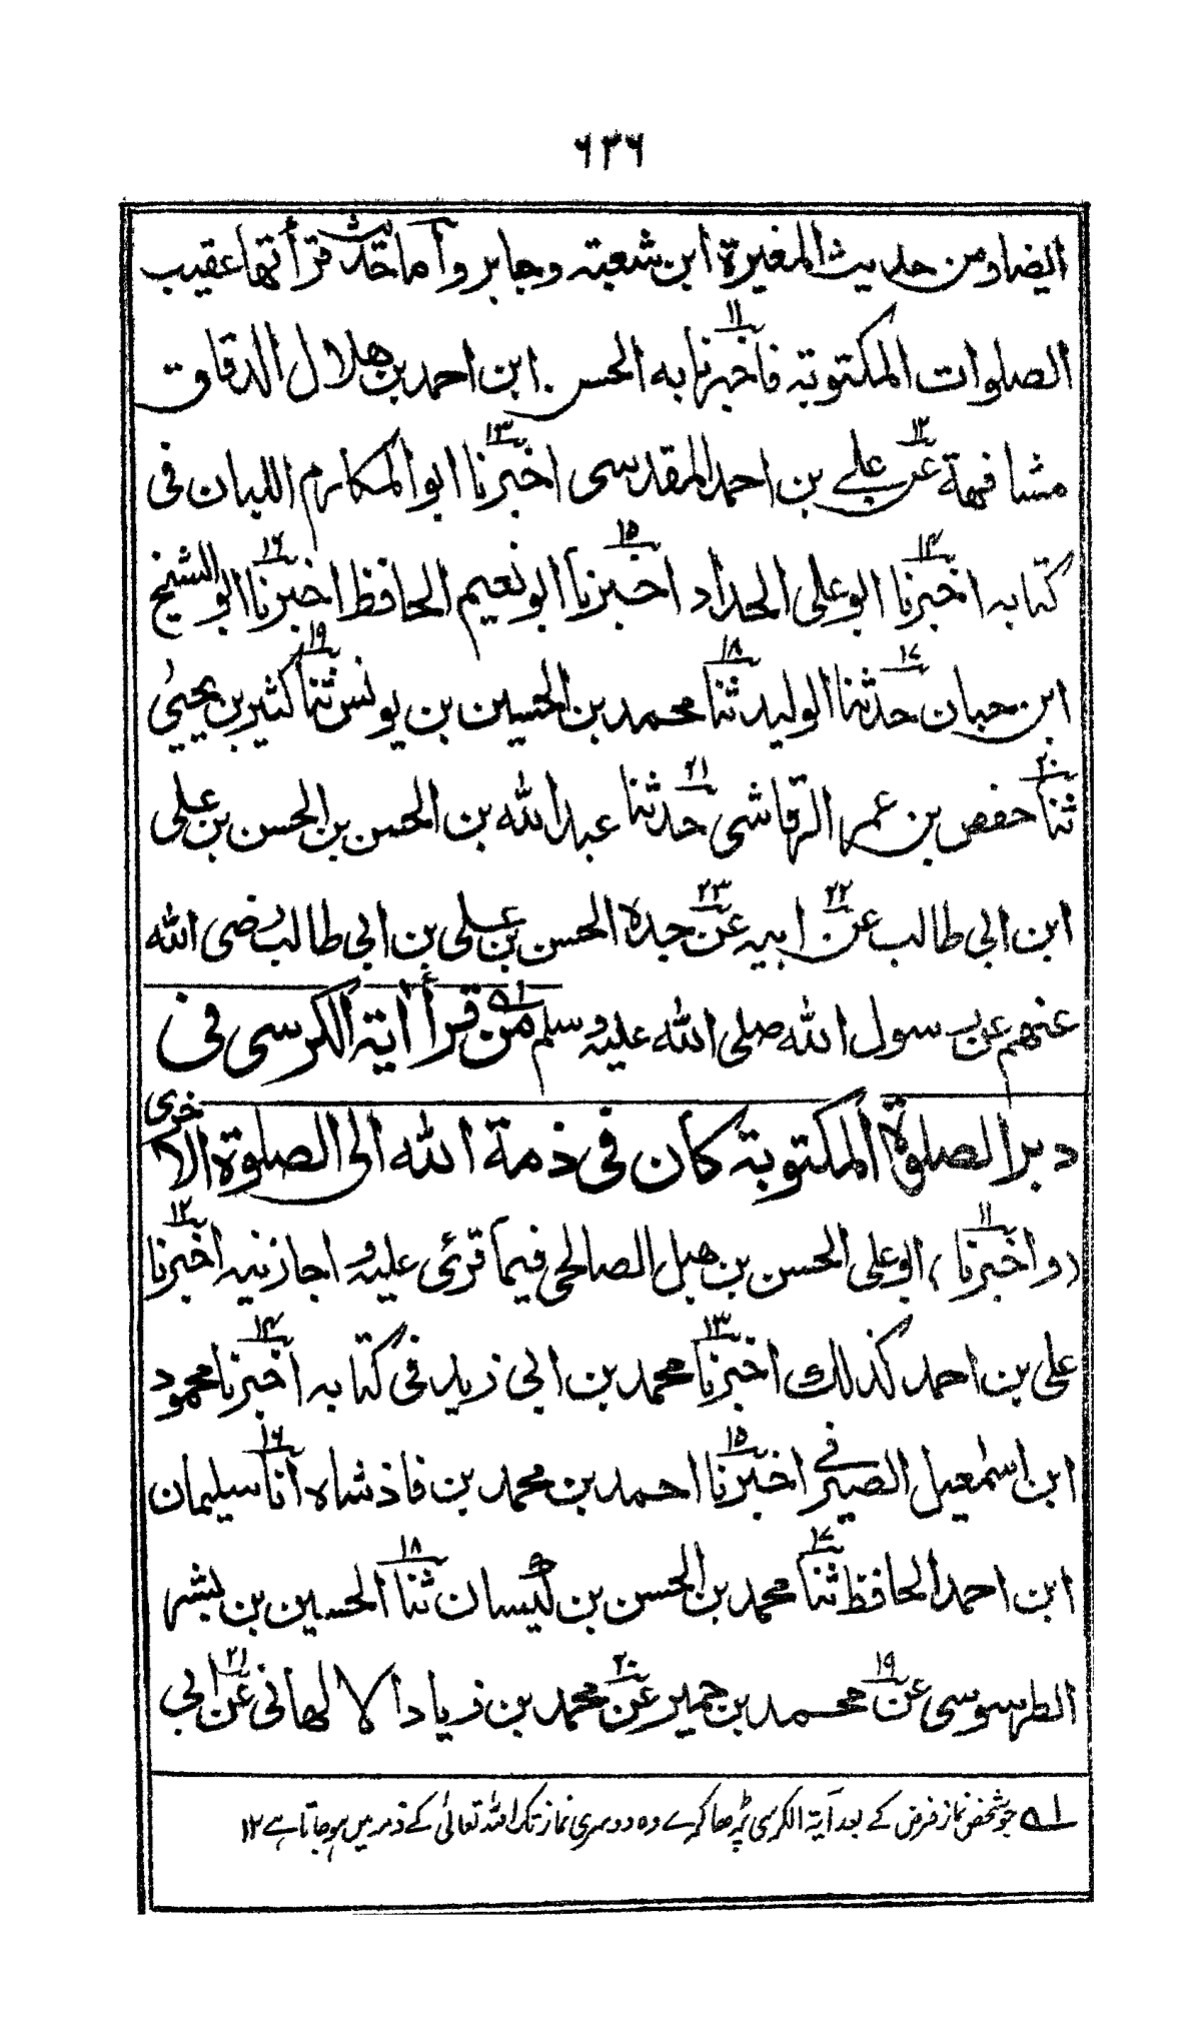 ٦٣٦
ايضا ومن حديث المغيرة ابن شعبته وجابر وأما حديث قرأتها عقيب
الصلوات المكتوبته فاخبرنا به الحسن ابن احمد بن هلال الدقاق
مشافهة عن علي بن احمد المقدسى اخبرنا ابو المكارم اللبان فى
كتابه اخبرنا ابو على الحداد اخبرنا ابو نعيم الحافظ اخبرنا ابو الشيخ
ابن حبان حدثنا الوليد ثنا محمد بن الحسين بن يونس ثنا كثير بن يحيىٰ
ثنا حفص بن عمر الرقاشى حدثنا عبد الله بن الحسن بن الحسن بن على
ابن ابى طالب عن ابيه عن جده الحسن بن على بن ابى طالب رضى الله
عنهم عن رسول الله صلى الله عليه وسلم من قرأ اية الكرسى فى
دبر الصلوة المكتوبة كان فى ذمة الله الى الصلوة الاخرى
(و اخبرنا) ابو على الحسن بن هبل الصالحى فيما قرئ عليه و اجازنيه اخبرنا
على بن احمد كذلك اخبرنا محمد بن ابى زيد فى كتابه اخبرنا محمود
ابن اسمٰعيل الصيرفى اخبرنا احمد بن محمد بن فاذشاه انا سليمان
ابن احمد الحافظ ثنا محمد بن الحسن بن كيسان ثنا الحسين بن بشر
الطرسوسى عن محمد بن حمير عن محمد بن زياد الالهانى عن ابى
١ جو شخص نماز فرض کے بعد آیة الکرسی پڑھا کرے وہ دوسری نماز تک اللہ تعالیٰ کے ذمہ میں ہو جاتا ہے ١٢